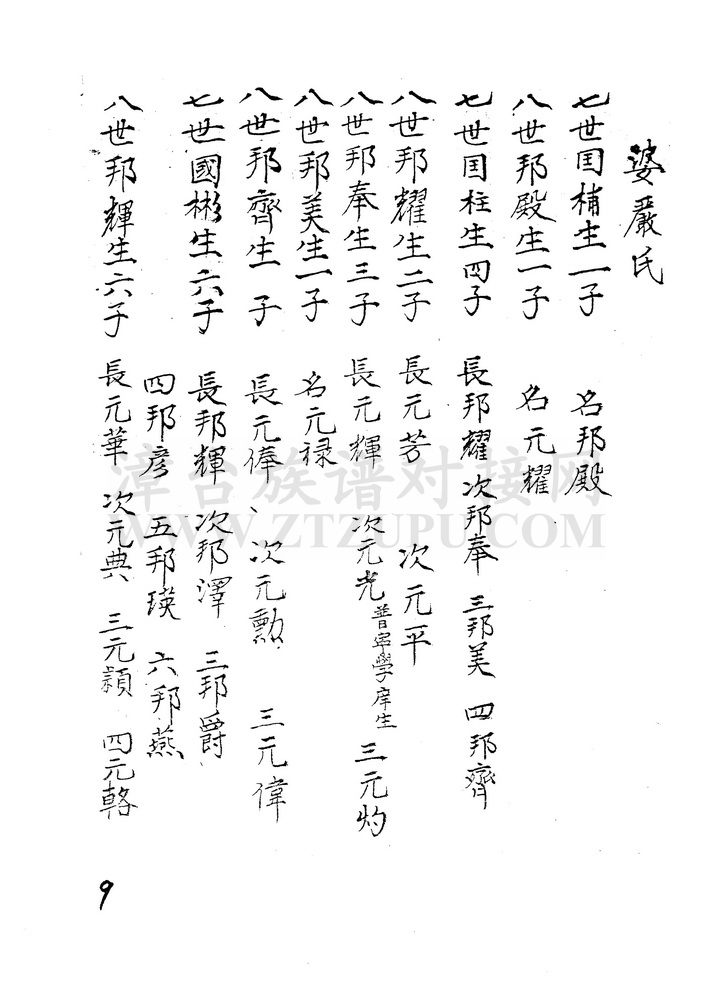 婆嚴氏
七世囯楠生一子 名邦殿
八世邦殿生一子 名元耀
七世囯柱生四子 長邦耀 次邦奉 三邦美 四邦齊
八世邦耀生二子 長元芳 次元平
八世邦奉生三子 長元輝 次元光 普寧學庠生 三元灼
八世邦美生一子 名元禄
八世邦齊生一子 長元俸、次元勲 三元偉
七世國彬生六子 長邦輝 次邦澤 三邦爵
四邦彥 五邦瑛 六邦燕
八世邦輝生六子 長元華 次元典 三元頴 四元輅
9
漳台族谱对接网
WWW.ZTZUPU.COM